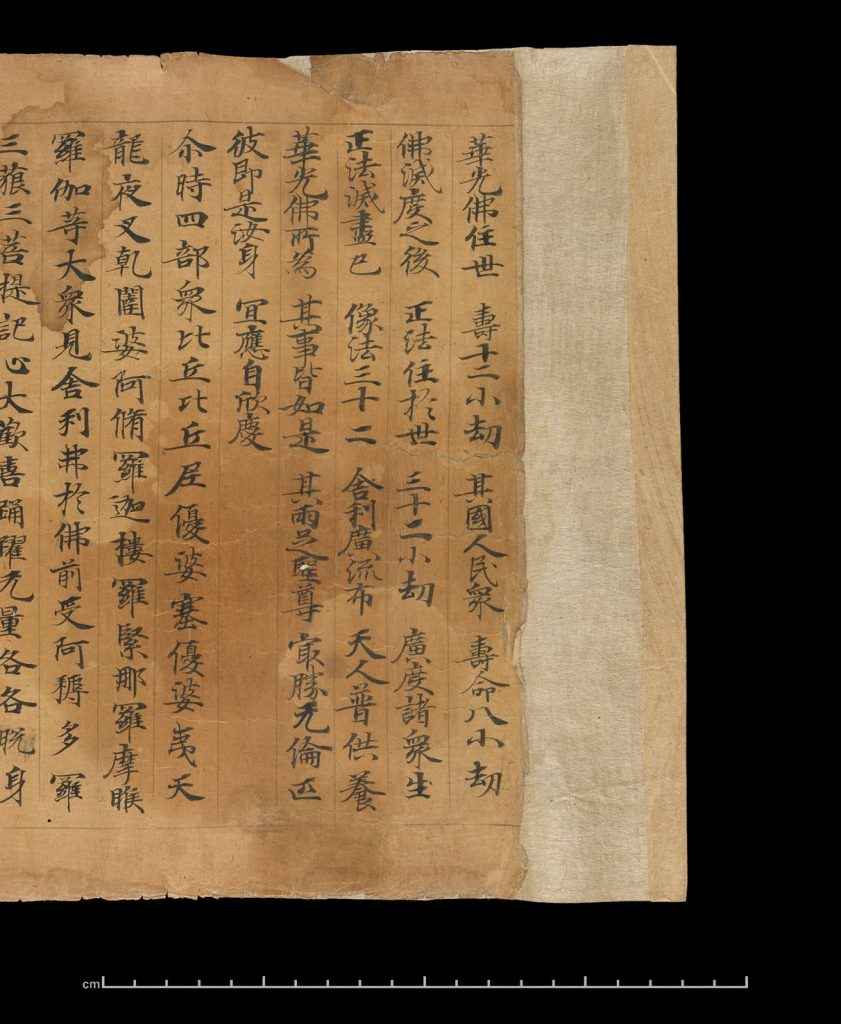 華光佛住世　壽十二小劫　其國人民衆　壽命八小劫
佛滅度之後　正法住於世　三十二小劫　廣度諸衆生
正法滅盡已　像法三十二　舍利廣流布　天人普供養
華光佛所為　其事皆如是　其兩足聖尊　冣勝无倫匹
彼即是汝身　冝應自欣慶
尒時四部衆比丘比丘尼優婆塞優婆夷天
龍夜叉乾闥婆阿脩羅迦摟羅緊那羅摩睺
羅伽等大衆見舍利弗於佛前受阿耨多羅
三藐三菩提記心大歡喜踊躍无量各各脫身
cm